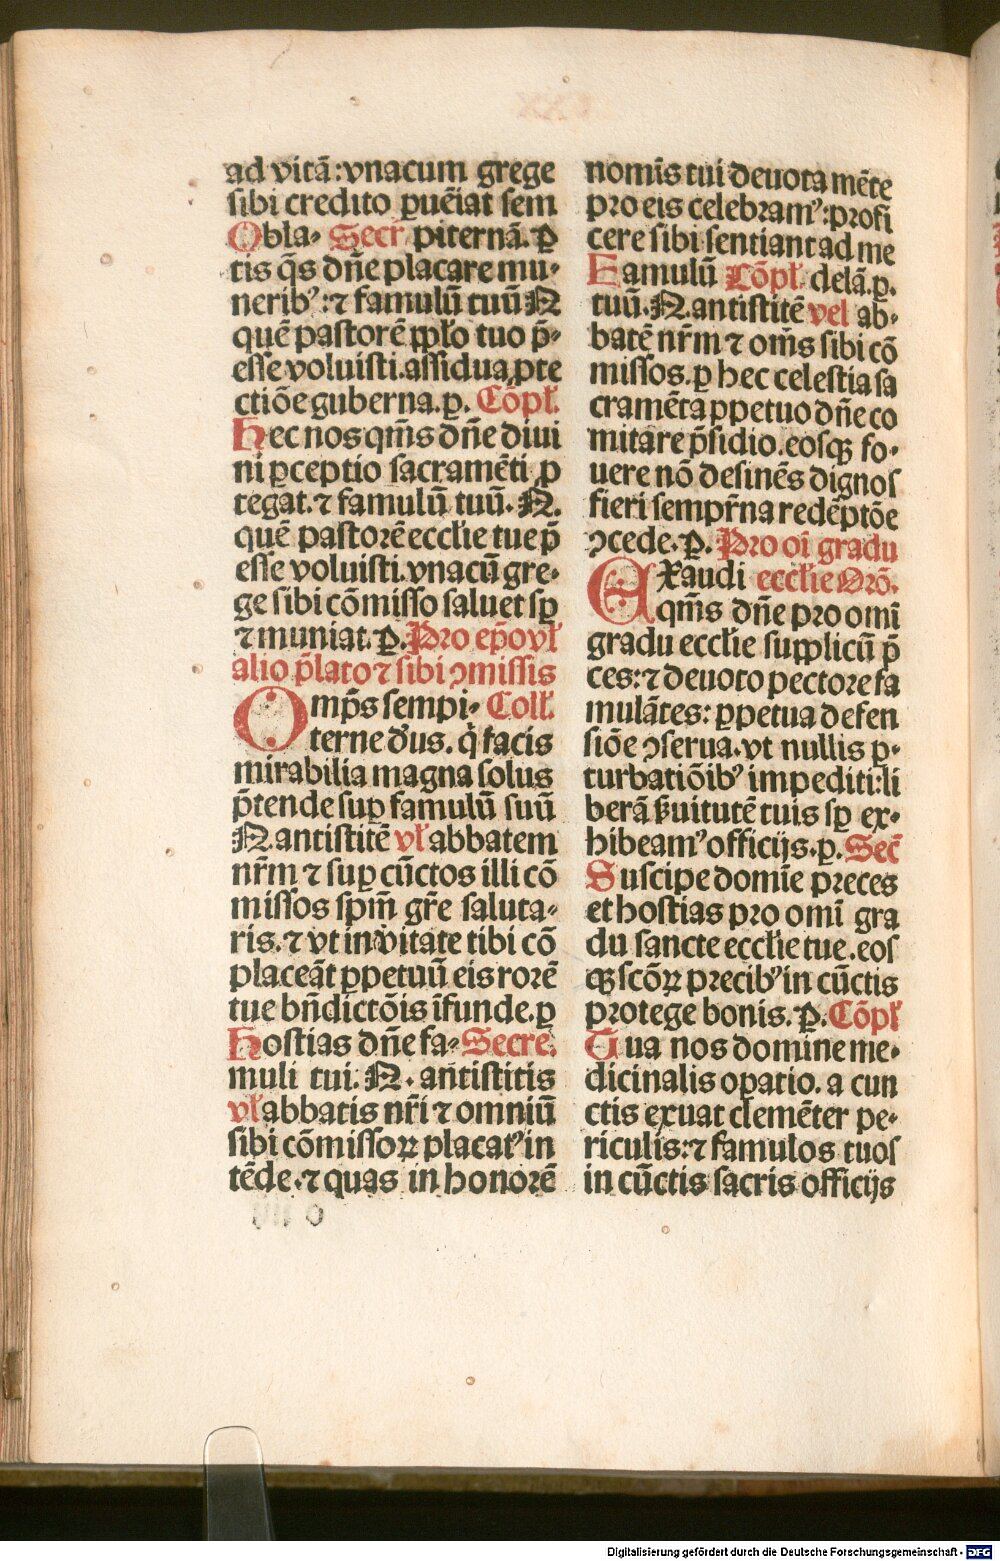 ad vitā:vnacum grege
sibi credito ꝑuēiat sem
Obla⸗ Secr̄ piternā.ꝑ
tis q̄s dn̄e placare mu⸗
nerib⁹:⁊ famulū tuū N
quē pastorē pp̄lo tuo p̄⸗
esse voluisti.assidua ꝓte
ctiōe guberna.ꝑ. Cōpl̄.
Hec nos qm̄s dn̄e diui
ni ꝑceptio sacramēti ꝓ
tegat.⁊ famulū tuū. N.
quē pastorē eccl̄ie tue p̄
esse voluisti.vnacū gre⸗
ge sibi cōmisso saluet sꝑ
⁊ muniat.ꝑ. Pro ep̄o vl̄
alio p̄lato ⁊ sibi ꝯmissis
Omp̄s sempi⸗ Coll̄.
terne de᷒us. q̇ facis
mirabilia magna solus
p̄tende suꝑ famulū suū
N. antistitē vl̄ abbatem
nr̄m ⁊ suꝑ cūctos illi cō
missos spm̄ gr̄e saluta⸗
ris.⁊ vt in v̇itate tibi cō
placeāt ꝑpetuū eis rorē
tue bn̄dictōis īfunde.ꝑ
Hostias dn̄e fa⸗ Secre.
muli tui. N. antistitis
vl̄ abbatis nr̄i ⁊ omniū
sibi cōmissoꝝ placat⁹ in
tēde.⁊ quas in honorē
nomīs tui deuota mēte
pro eis celebram⁹:profi
cere sibi sentiant ad me
Famulū Cōpl̄. delā.ꝑ.
tuū. N. antistitē vel ab⸗
batē nr̄m ⁊ om̄s sibi cō
missos.ꝑ hec celestia sa
cramēta ꝑpetuo dn̄e co
mitare p̄sidio.eosqꝫ fo⸗
uere nō desinēs dignos
fieri sempr̄na redēptōe
ꝯcede.ꝑ. Pro oī gradu
Exaudi eccl̄ie Orō.
qm̄s dn̄e pro omī
gradu eccl̄ie supplicū p̄
ces:⁊ deuoto pectore fa
mulātes: ꝑpetua defen
siōe ꝯserua.vt nullis ꝑ⸗
turbatiōib⁹ impediti:li
berā ẜuitutē tuis sꝑ ex⸗
hibeam⁹ officijs.ꝑ. Sec̄
Suscipe domīe preces
et hostias pro omī gra
du sancte eccl̄ie tue.eos
qꝫ scōꝝ precib⁹ in cūctis
protege bonis.ꝑ. Cōpl̄
Tua nos domine me⸗
dicinalis oꝑatio. a cun
ctis exuat clemēter pe⸗
riculis:⁊ famulos tuos
in cūctis sacris officijs
Digitalisierung gefördert durch die Deutsche Forschungsgemeinschaft - DFG